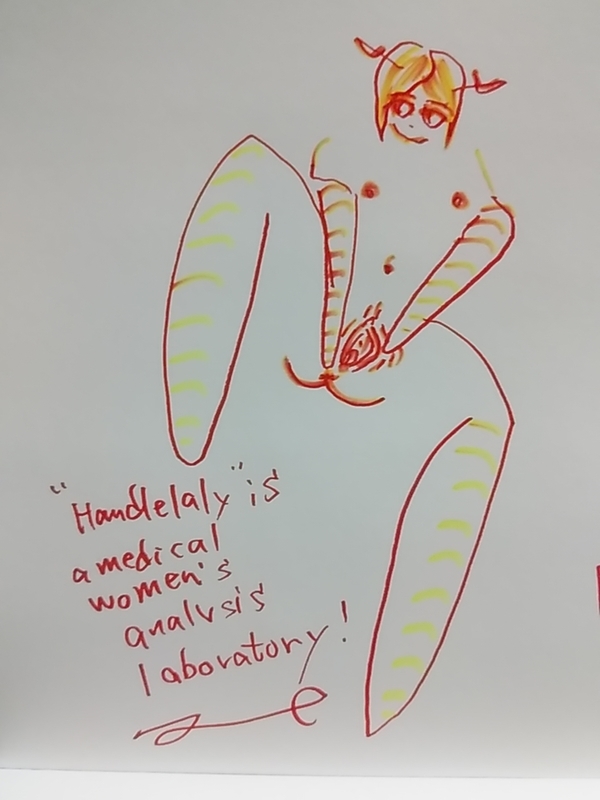 "Handlelaly" is
a medical
women's
analysis
laboratory!